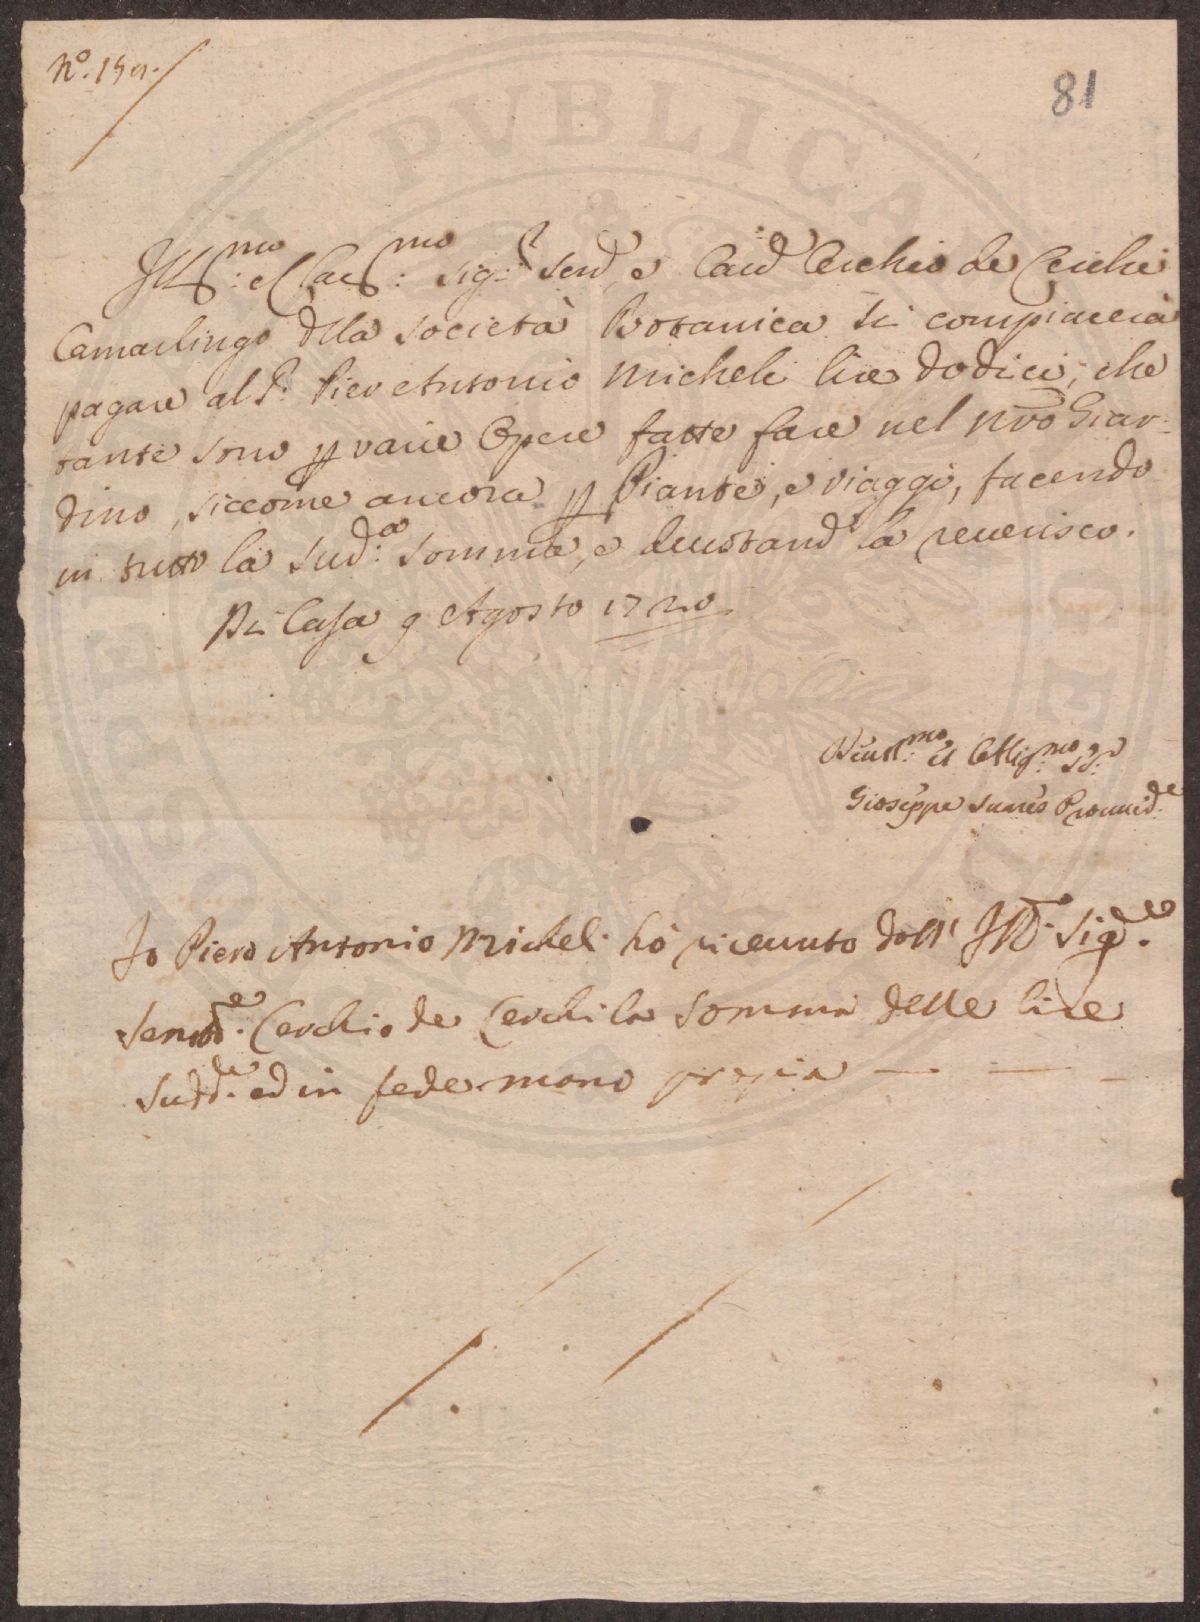 N.º 15
81
Ill.mo e Clar.mo Sig.r Send e Cav.d Cerchio de Cerchi
Camarlingo dlla Società Botanica si compiacerà
pagare al S.r Pier Antonio Micheli lire dodici, che
tante sono p varie Opere fatte fare nel nrõ Giar-
dino, siccome ancora p Piante, e viaggi, facendo
in tutto la sud.a somma, e devotand la reverisco.
Di Casa 9 Agosto 1720
mo et Obblig.mo
Gioseppe Proved.e
Io Piero Antonio Micheli hò ricevuto dall' Ill.o Sig.e
Senat.e Cerchio de Cerchi la somma delle lire
Sudd.e ed in fede mano propia — — —
PVBLICA